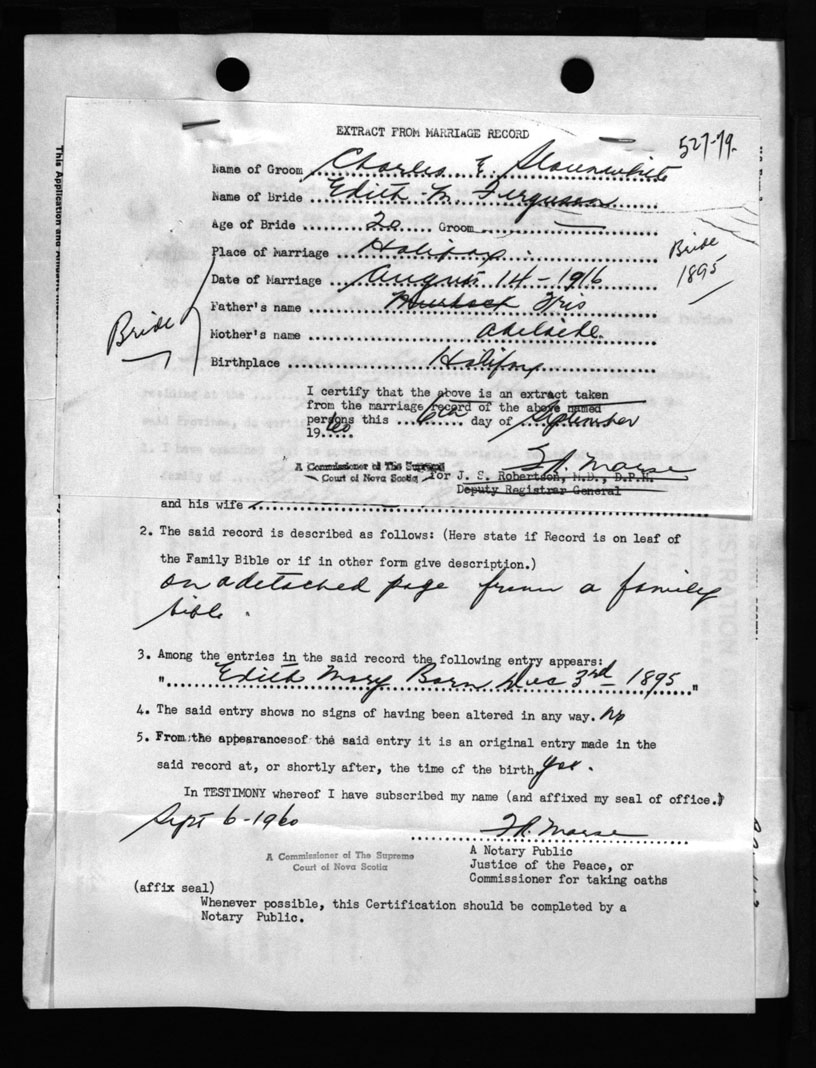 EXTRACT FROM MARRIAGE RECORD
527-79.
Name of Groom Charles E. Slaunwhite
Name of Bride Edith M. Fergusson
Age of Bride 20 Groom —
Place of Marriage Halifax
Bride
1895
Date of Marriage August 14-1916
Father's name Murdock Fris
Bride
Mother's name Adelaide.
Birthplace Halifax
I certify that the above is an extract taken
from the marriage record of the above named
persons this 6th day of September
1960
A Commissioner of The Supreme
Court of Nova Scotia
for J. S. Robertson, M.D., D.P.H.
Deputy Registrar General
and his wife
2. The said record is described as follows: (Here state if Record is on leaf of
the Family Bible or if in other form give description.)
on a detached page from a family
bible.
3. Among the entries in the said record the following entry appears:
" Edith Mary Born Dec 3rd 1895 "
4. The said entry shows no signs of having been altered in any way. No
5. From the appearances of the said entry it is an original entry made in the
said record at, or shortly after, the time of the birth yes.
In TESTIMONY whereof I have subscribed my name (and affixed my seal of office.)
Sept 6-1960
A Commissioner of The Supreme
Court of Nova Scotia
A Notary Public
Justice of the Peace, or
Commissioner for taking oaths
(affix seal)
Whenever possible, this Certification should be completed by a
Notary Public.
This Application and